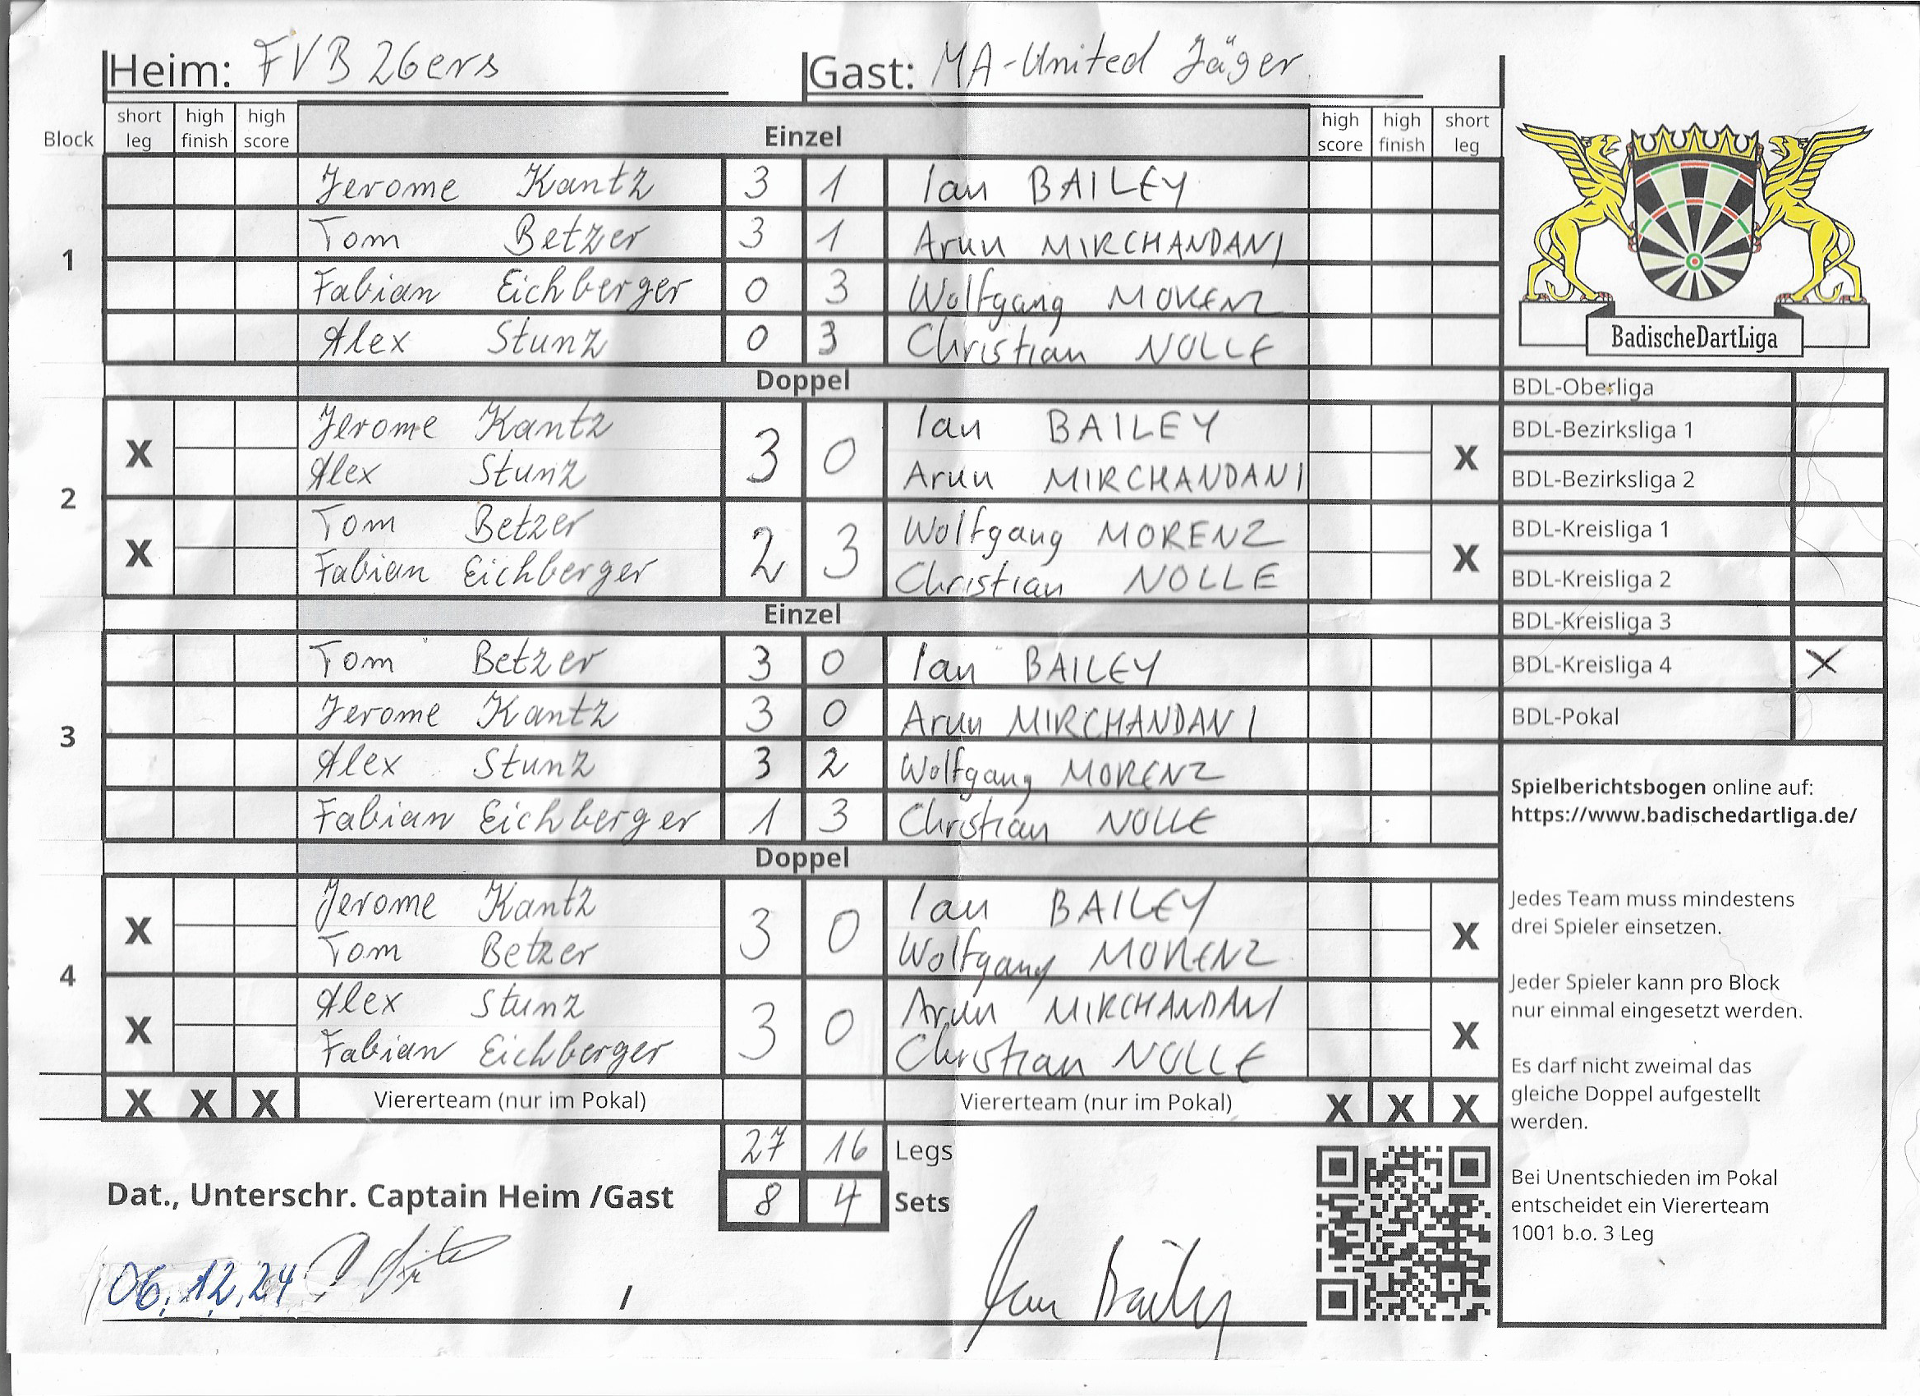 Heim: FVB 26ers Gast: MA-United Jäger
Block short leg high finish high score Einzel high score high finish short leg
1
Jerome Kantz 3 1 Ian BAILEY
Tom Betzer 3 1 Arun MIRCHANDANI
Fabian Eichberger 0 3 Wolfgang MORENZ
Alex Stunz 0 3 Christian NOLLE
Doppel
2
X Jerome Kantz 3 0 Ian BAILEY X
Alex Stunz Arun MIRCHANDANI
X Tom Betzer 2 3 Wolfgang MORENZ X
Fabian Eichberger Christian NOLLE
Einzel
3
Tom Betzer 3 0 Ian BAILEY
Jerome Kantz 3 0 Arun MIRCHANDANI
Alex Stunz 3 2 Wolfgang MORENZ
Fabian Eichberger 1 3 Christian NOLLE
Doppel
4
X Jerome Kantz 3 0 Ian BAILEY X
Tom Betzer Wolfgang MORENZ
X Alex Stunz 3 0 Arun MIRCHANDANI X
Fabian Eichberger Christian NOLLE
X X X Viererteam (nur im Pokal) Viererteam (nur im Pokal) X X X
27 16 Legs
Dat., Unterschr. Captain Heim /Gast 8 4 Sets
06.12.24 / Ian Bailey
BadischeDartLiga
BDL-Oberliga
BDL-Bezirksliga 1
BDL-Bezirksliga 2
BDL-Kreisliga 1
BDL-Kreisliga 2
BDL-Kreisliga 3
BDL-Kreisliga 4 X
BDL-Pokal
Spielberichtsbogen online auf:
https://www.badischedartliga.de/
Jedes Team muss mindestens
drei Spieler einsetzen.
Jeder Spieler kann pro Block
nur einmal eingesetzt werden.
Es darf nicht zweimal das
gleiche Doppel aufgestellt
werden.
Bei Unentschieden im Pokal
entscheidet ein Viererteam
1001 b.o. 3 Leg